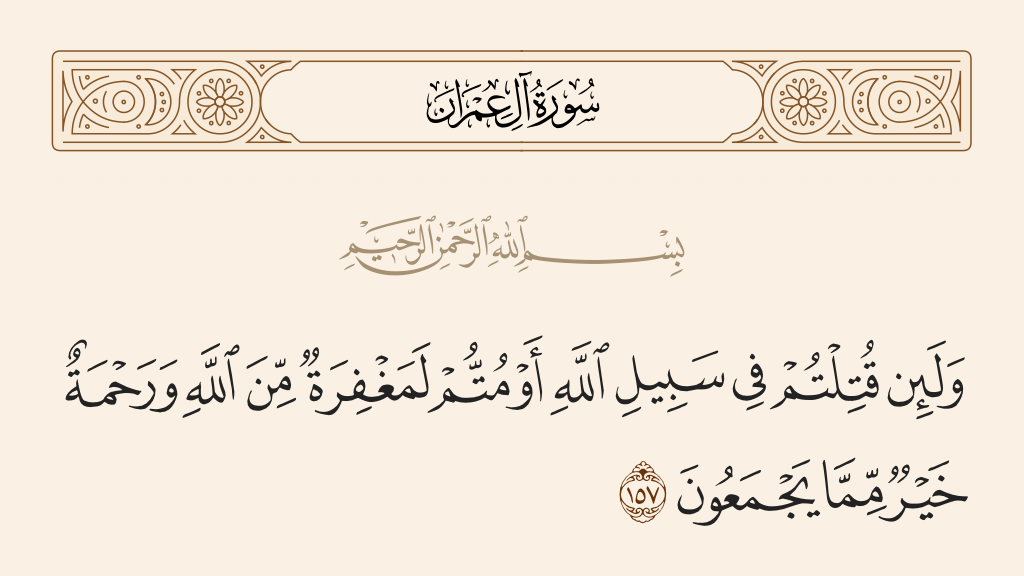 سُورَةُ آلِ عِمْرَانَ
بِسْمِ ٱللَّهِ ٱلرَّحْمَٰنِ ٱلرَّحِيمِ
وَلَئِن قُتِلْتُمْ فِى سَبِيلِ ٱللَّهِ أَوْ مُتُّمْ لَمَغْفِرَةٌ مِّنَ ٱللَّهِ وَرَحْمَةٌ
خَيْرٌ مِّمَّا يَجْمَعُونَ ١٥٧